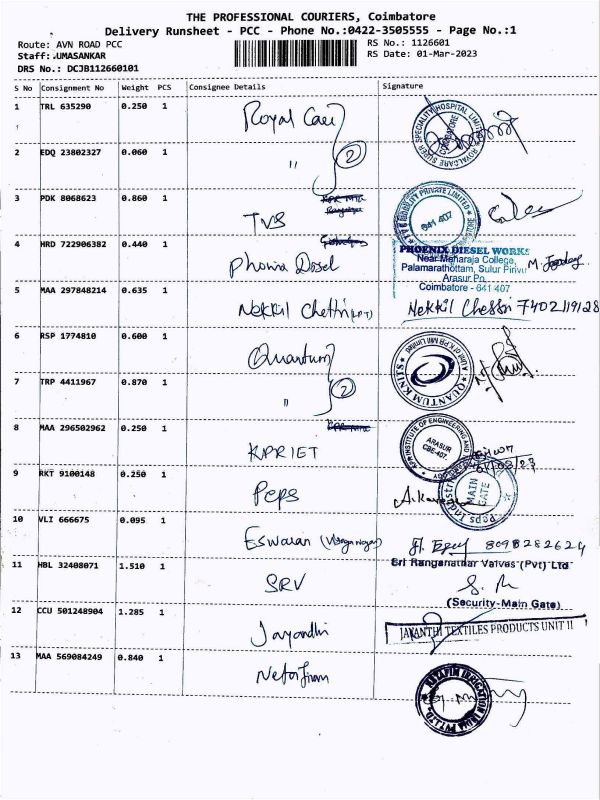 THE PROFESSIONAL COURIERS, Coimbatore
Delivery Runsheet - PCC - Phone No.:0422-3505555 - Page No.:1
Route: AVN ROAD PCC
Staff: UMASANKAR
DRS No.: DCJB112660101
RS No.: 1126601
RS Date: 01-Mar-2023
S No Consignment No Weight PCS Consignee Details Signature
1 TRL 635290 0.250 1 Royal Care
SUPER SPECIALITY HOSPITAL LIMITED ROYALCARE COIMBATORE
2 EDQ 23802327 0.060 1 " 2
3 PDK 8068623 0.860 1 TVS
MOBILITY PRIVATE LIMITED 641 407
4 HRD 722906382 0.440 1 Phonix Diesel
PHOENIX DIESEL WORKS
Near Maharaja College,
Palamarathottam, Sulur Pirivu
Arasur Po
Coimbatore - 641 407
5 MAA 297848214 0.635 1 Nekkil Chettri
Nekkil Chessri 7402119128
6 RSP 1774810 0.600 1 Quantum
QUANTUM KNITS
7 TRP 4411967 0.870 1 " 2
8 MAA 296502962 0.250 1 KPRIET
KPR INSTITUTE OF ENGINEERING AND
ARASUR
CBE-407.
9 RKT 9100148 0.250 1 Peps
Peps Industries
MAIN
GATE
10 VLI 666675 0.095 1 Eswaran
8098282624
11 HBL 32408071 1.510 1 SRV
Sri Ranganathar Valves (Pvt) Ltd
(Security-Main Gate)
12 CCU 501248904 1.285 1 Jayandhi
JAYANTHI TEXTILES PRODUCTS UNIT II
13 MAA 569084249 0.840 1 Netafim
NETAFIM IRRIGATION INDIA PVT.LTD.